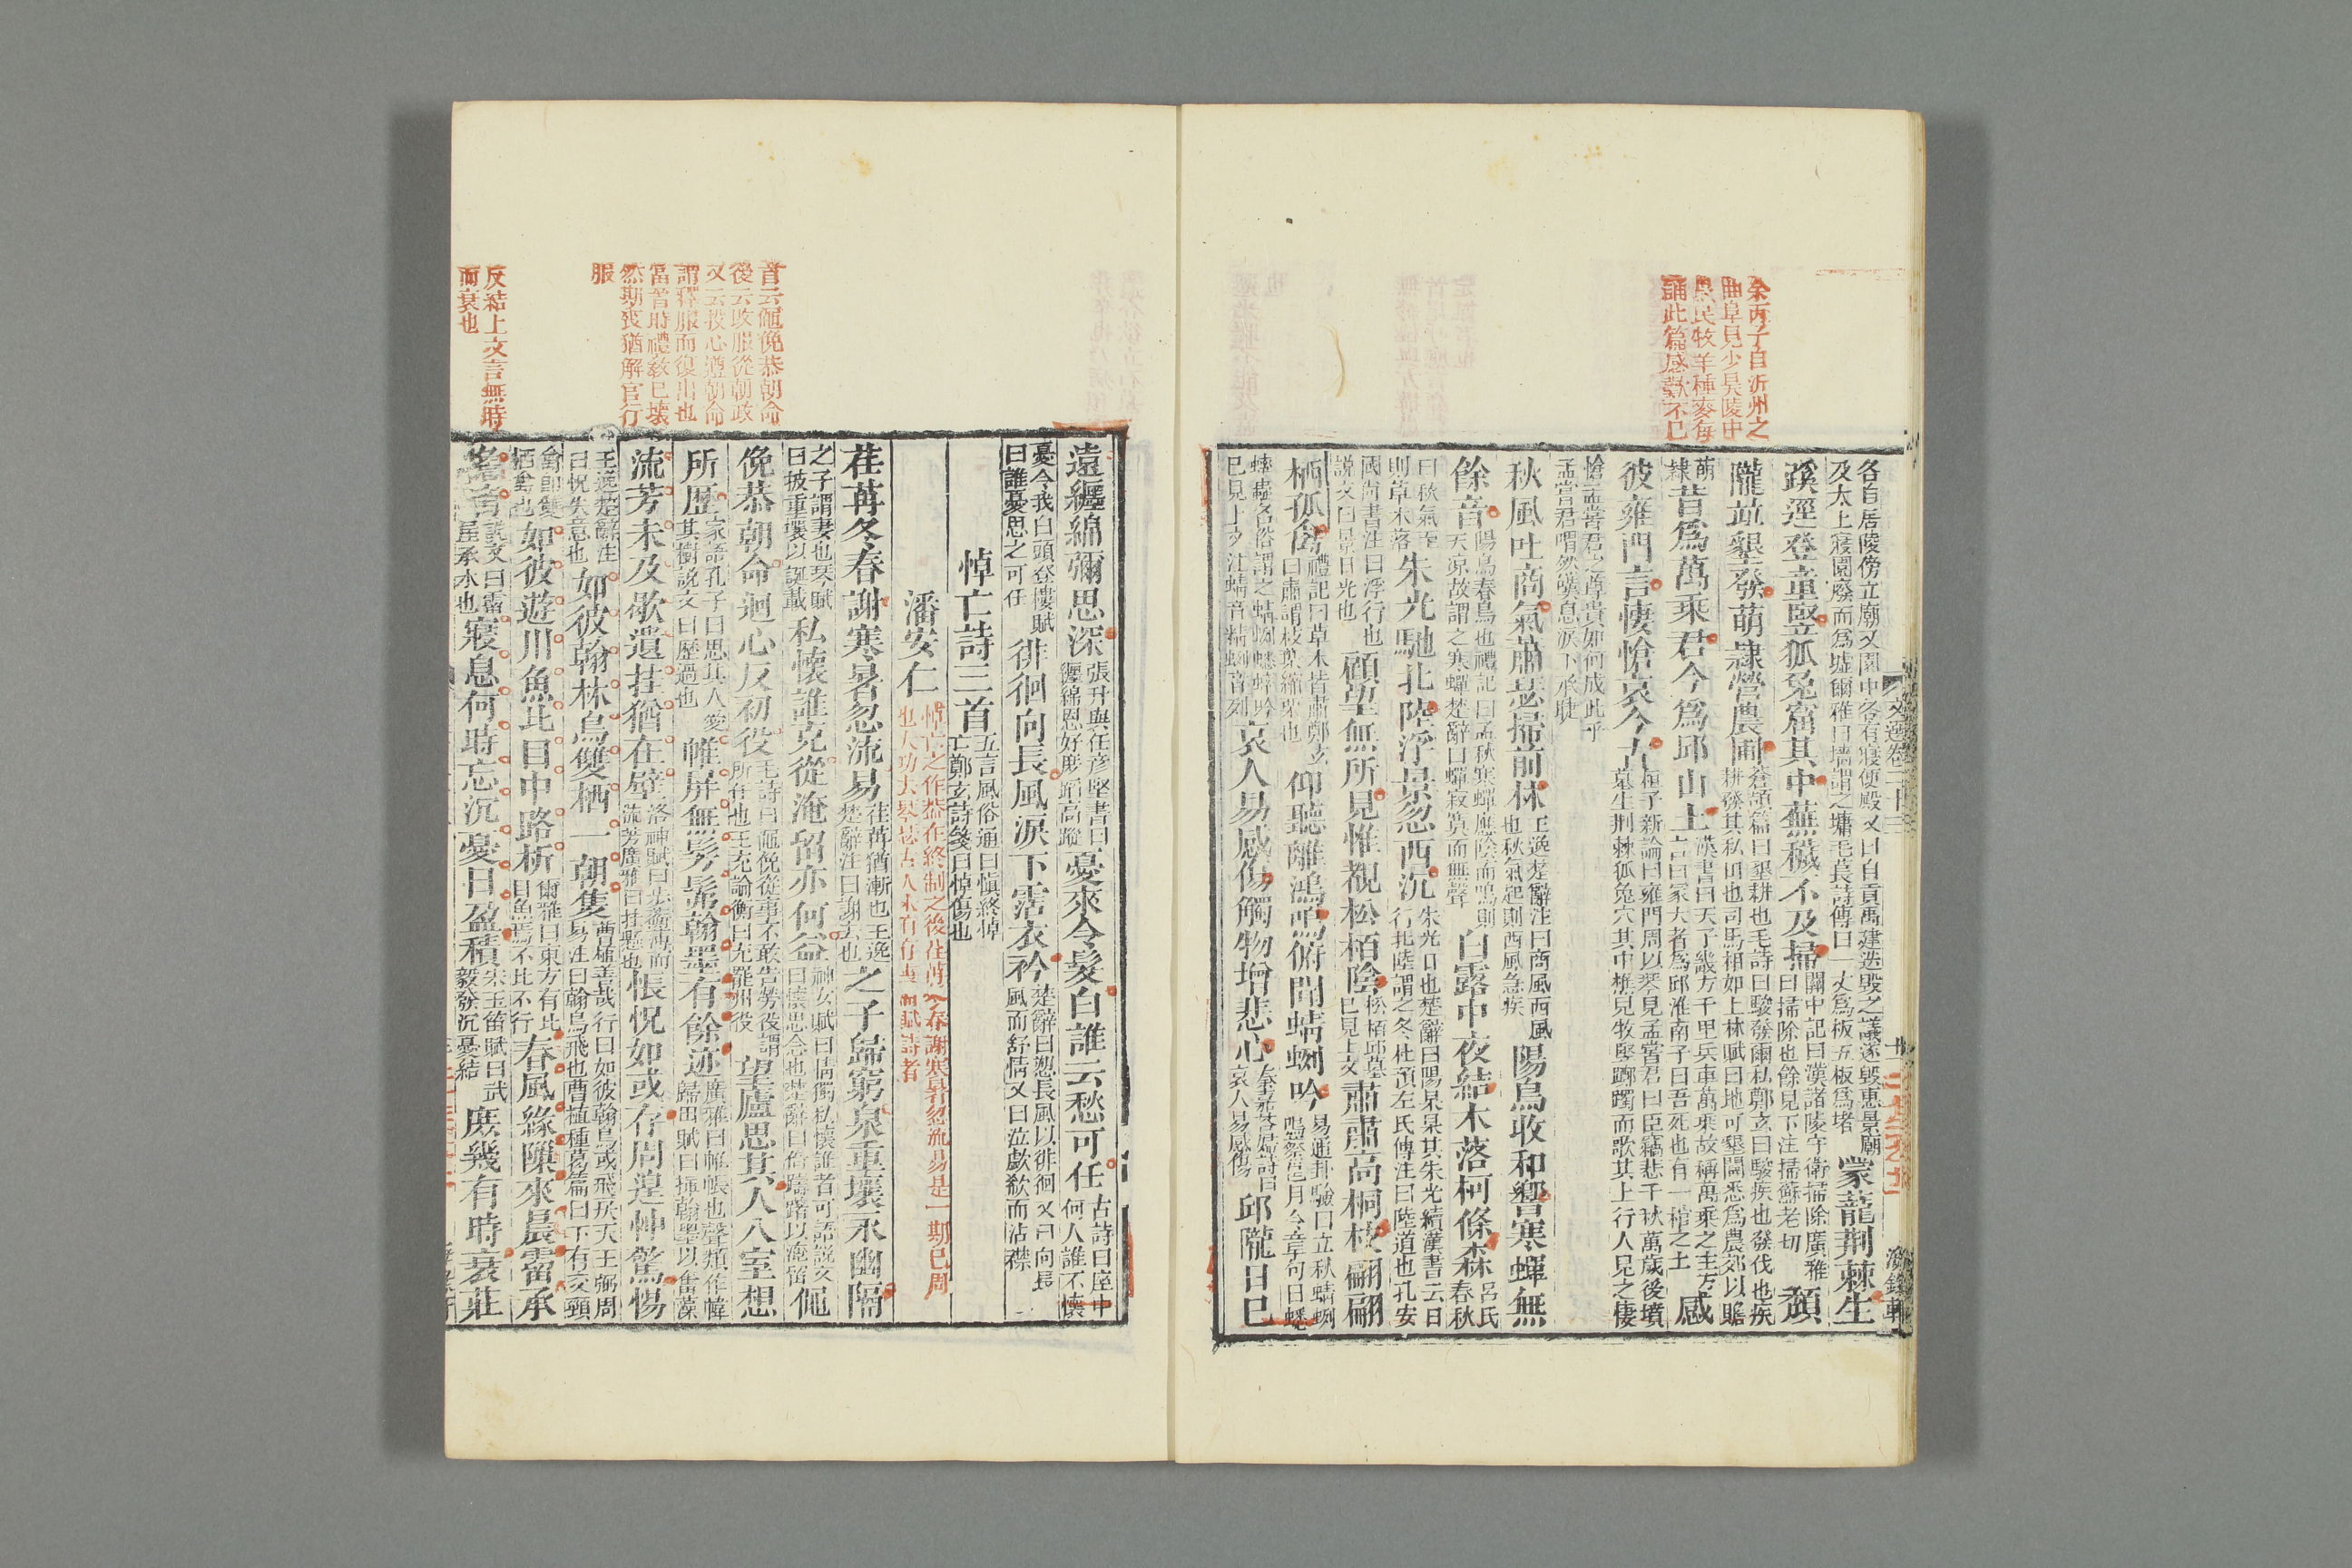 余丙子自沂州之
曲阜見少昊陵中
愚民牧羊種麥每
誦此篇感歎不已
文選卷二十三
海錄軒
各自居陵傍立廟又園中各有寢便殿又曰自貢禹建迭毀之議遂毀惠景廟
及太上寢園廢而爲墟爾雅曰墻謂之墉毛萇詩傳曰一丈爲板五板爲堵
蒙蘢荆棘生
蹊逕登童豎狐兔窟其中蕪穢不及掃
關中記曰漢諸陵守衛掃除廣雅
曰掃除也餘見下注掃蘇老切
頽
隴並墾發萌隷營農圃
蒼頡篇曰墾耕也毛詩曰駿發爾私鄭玄曰駿疾也發伐也疾
耕發其私田也司馬相如上林賦曰地可墾闢悉爲農郊以贍
萌
隷
昔爲萬乘君今爲邱山土
漢書曰天子畿方千里兵車萬乘故稱萬乘之主方
言曰冢大者爲邱淮南子曰吾死也有一棺之土
感
彼雍門言悽愴哀今古
桓子新論曰雍門周以琴見孟嘗君曰臣竊悲千秋萬歲後墳
墓生荆棘狐兔穴其中樵兒牧豎躑躅而歌其上行人見之悽
愴孟嘗君之尊貴如何成此乎
孟嘗君喟然嘆息淚下承睫
秋風吐商氣蕭瑟掃前林
王逸楚辭注曰商風西風
也秋氣起則西風急疾
陽鳥收和響寒蟬無
餘音
陽鳥春鳥也禮記曰孟秋寒蟬應陰而鳴則
天凉故謂之寒蟬楚辭曰蟬寂寞而無聲
白露中夜結木落柯條森
呂氏
春秋
曰秋氣至
則草木落
朱光馳北陸浮景忽西沉
朱光日也楚辭曰陽杲杲其朱光續漢書云日
行北陸謂之冬杜預左氏傳注曰陸道也孔安
國尚書注曰浮行也
説文曰景日光也
顧望無所見惟覩松栢陰
松栢邱墓
已見上文
肅肅高桐枝翩翩
栖孤禽
禮記曰草木皆肅鄭玄
曰肅謂枝葉縮栗也
仰聽離鴻鳴俯聞蜻蛚吟
易通卦驗曰立秋蜻蛚
鳴蔡邕月令章句曰蟋
蟀蟲名俗謂之蜻蛚蟋蟀吟
已見上文注蜻音精蛚音列
哀人易感傷觸物增悲心
秦嘉答婦詩曰
哀人易感傷
邱隴日已
遠纏綿彌思深
張升與任彦堅書曰
纏綿恩好庶蹈高蹤
憂來令髮白誰云愁可任
古詩曰座中
何人誰不懷
憂令我白頭登樓賦
曰誰憂思之可任
徘徊向長風淚下霑衣衿
楚辭曰愬長風以徘徊又曰向長
風而舒情又曰泣歔欷而沾襟
悼亡詩三首
五言風俗通曰愼終悼
亡鄭玄詩箋曰悼傷也
潘安仁
悼亡之作蓋在終制之後荏苒冬春謝寒暑忽流易是一期已周
荏苒冬春謝寒暑忽流易
荏苒猶漸也王逸
楚辭注曰謝去也
之子歸窮泉重壤永幽隔
之子謂妻也琴賦
曰披重壤以誕載
私懷誰克從淹留亦何益
神女賦曰情獨私懷誰者可語説文
曰懷思念也楚辭曰倚躊躇以淹留
僶
俛恭朝命迴心反初役
毛詩曰僶俛從事不敢告勞役謂
所任也王充論衡曰充罷州役
望廬思其人入室想
所歷
家語孔子曰思其人愛
其樹説文曰歷過也
帷屏無髣髴翰墨有餘迹
廣雅曰帷帳也聲類作幃
歸田賦曰揮翰墨以奮藻
流芳未及歇遺挂猶在壁
洛神賦曰步蘅薄而
流芳廣雅曰挂懸也
悵怳如或存周遑忡驚惕
王逸楚辭注
曰怳失意也
如彼翰林鳥雙栖一朝隻
曹植善哉行曰如彼翰鳥或飛戾天王弼周
易注曰翰鳥飛也曹植種葛篇曰下有交頸
禽即雙
栖禽也
如彼遊川魚比目中路析
爾雅曰東方有比
目魚焉不比不行
春風緣隟來晨霤承
檐滴
說文曰霤
屋承水也
寢息何時忘沉憂日盈積
宋玉笛賦曰武
毅發沉憂結
庶幾有時衰莊
首云僶俛恭朝命
後云改服從朝政
又云投心遵朝命
謂釋服而復出也
當晉時禮教已壞
然期喪猶解官行
服
反結上文言無時
而衰也